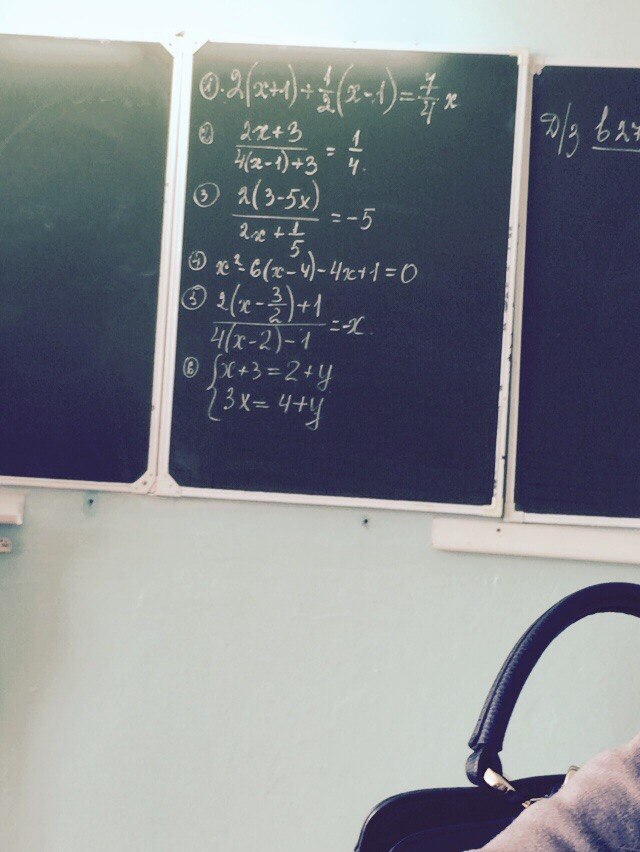 ① 2(x+1)+1/2(x-1)=7/4 x
② (2x+3)/(4(x-1)+3) = 1/4.
③ 2(3-5x)/(2x+1/5) = -5
④ x²-6(x-4)-4x+1=0
⑤ (2(x-3/2)+1)/(4(x-2)-1) = -x.
⑥ {x+3=2+y
{3x=4+y
Д/з в 27